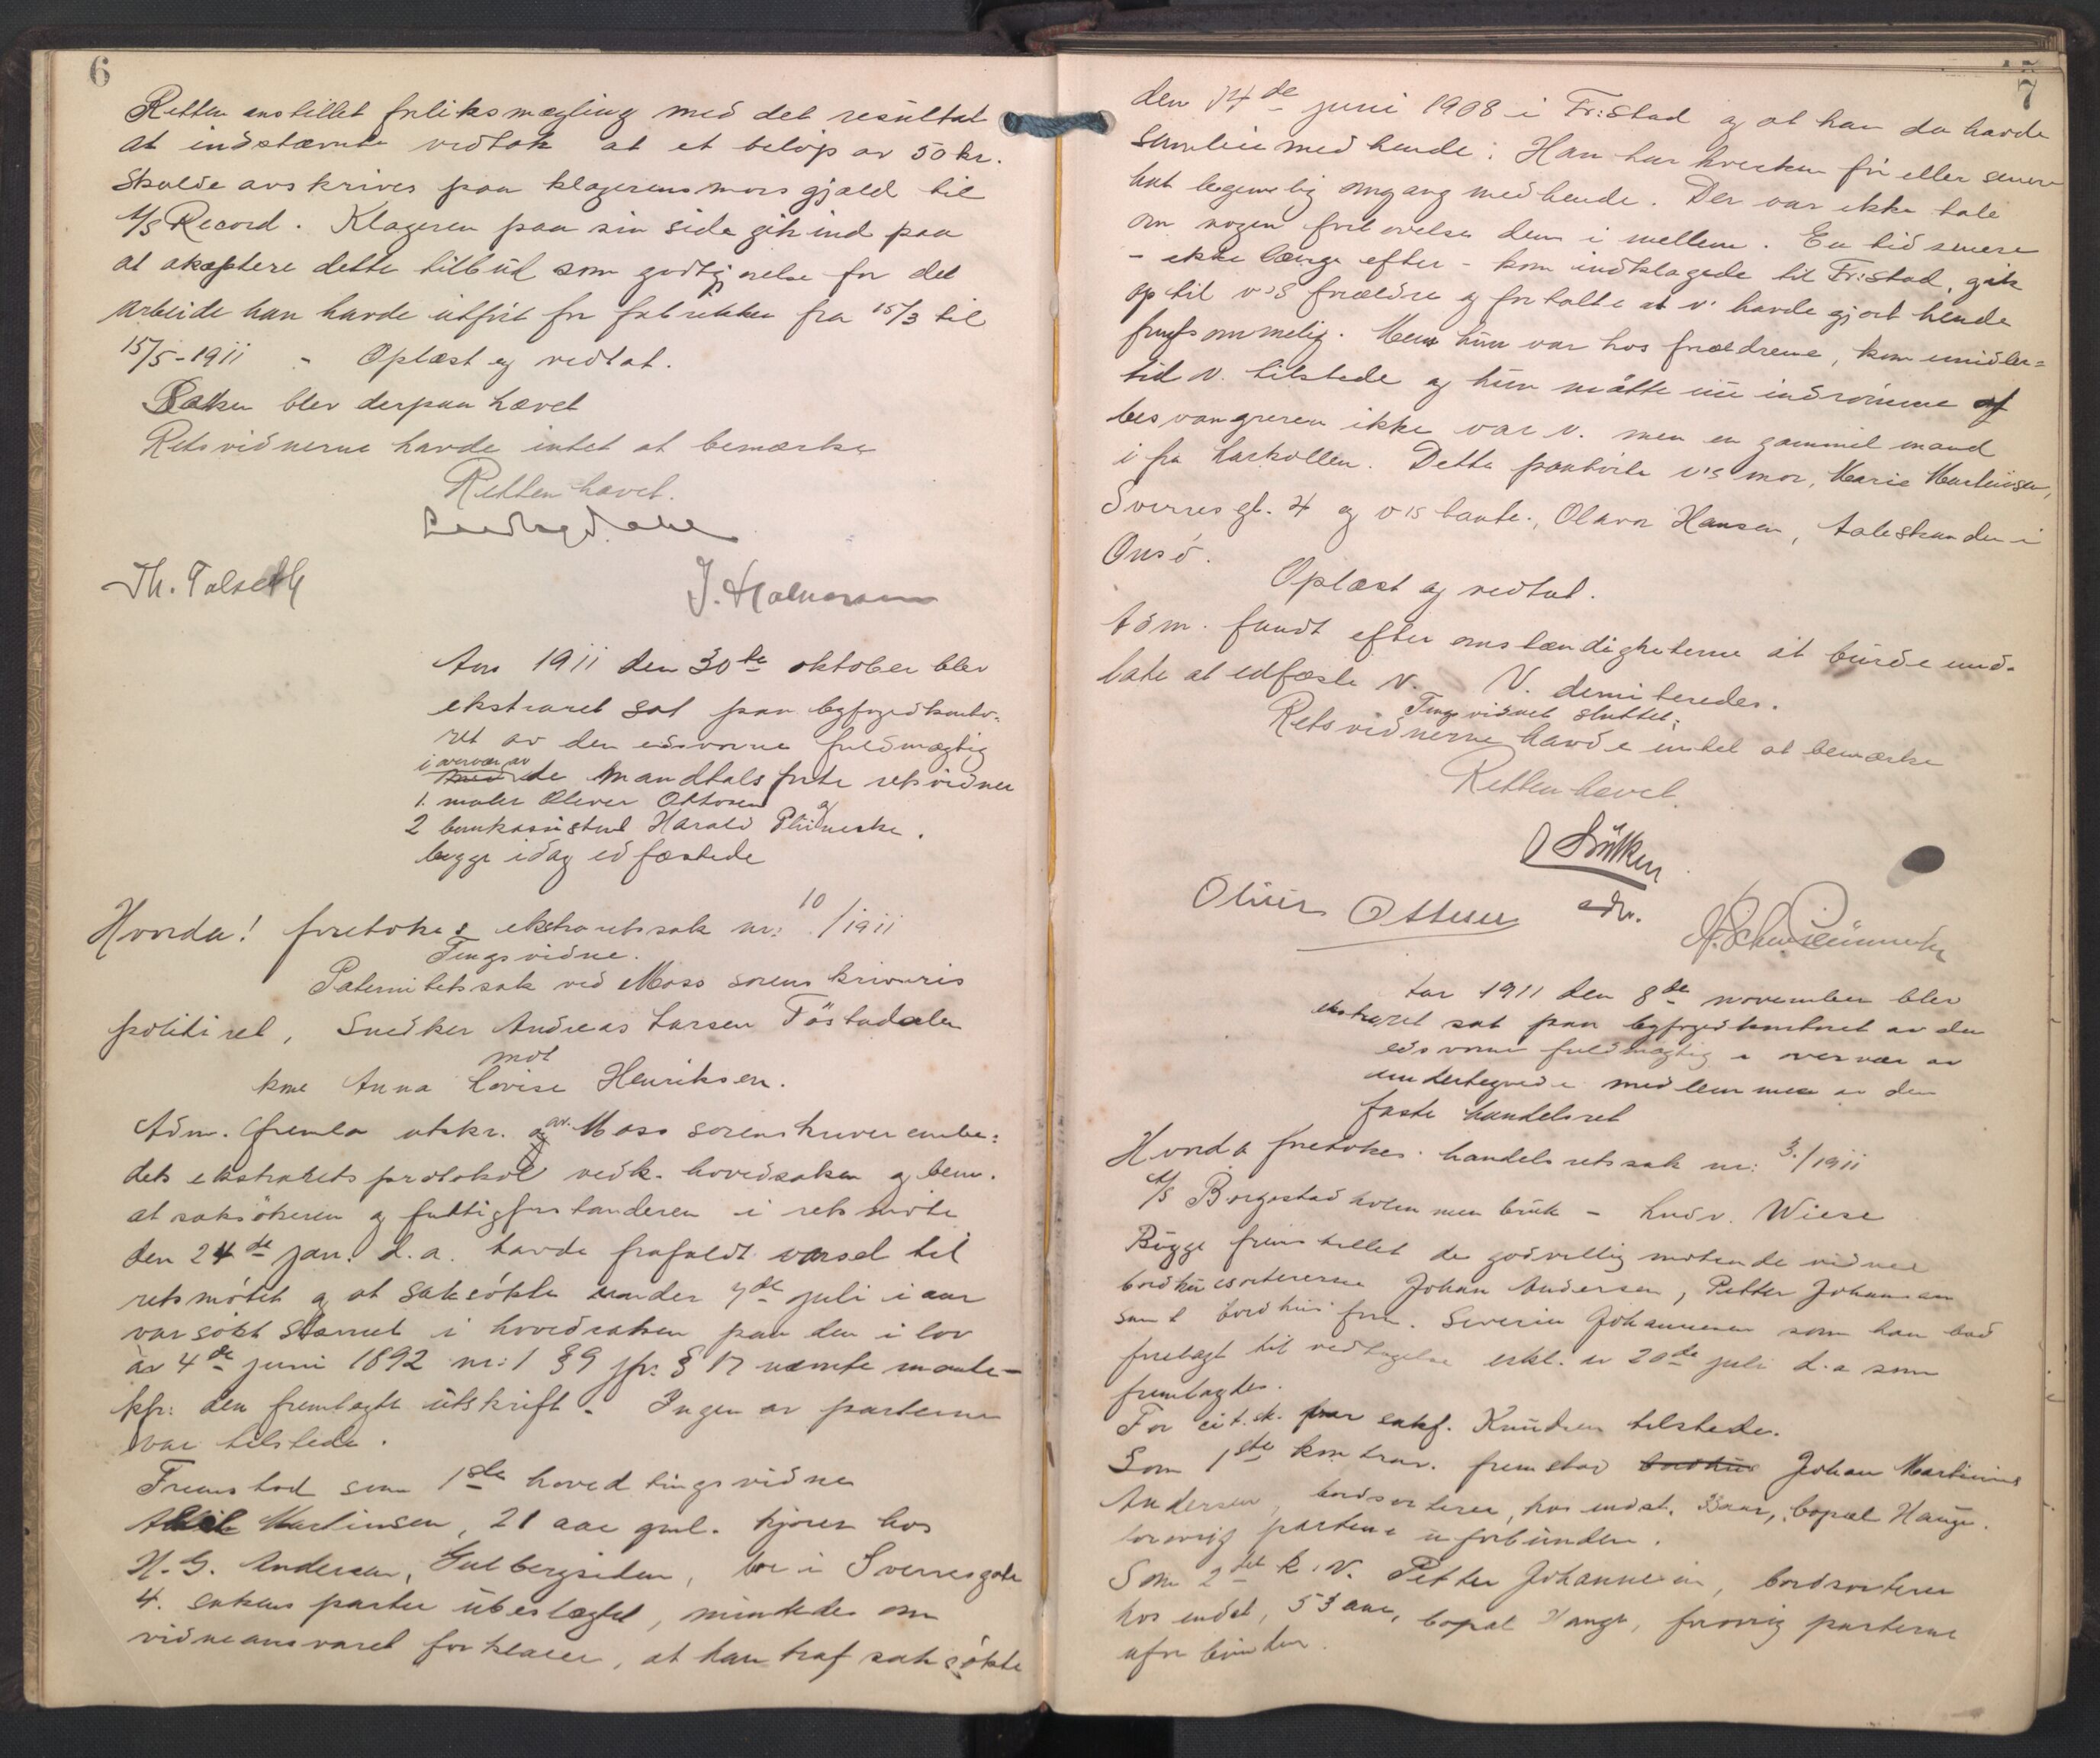 6
Retten anstillet forliksmægling med det resultat
at indstævnte vedtok at et beløp av 50 kr.
skulde avskrives paa klagerens mors gjæld til
A/S Record. Klageren paa sin side gik ind paa
at akseptere dette tilbud som godtgjørelse for det
arbeide han havde utført for fabrikken fra 15/3 til
15/5-1911 - Oplæst og vedtat.
Saken blev derpaa hævet
Retsvidnerne havde intet at bemærke
Retten hævet.
Th. Tolseth
J. Halvorsen
Aar 1911 den 30te oktober blev
ekstraret sat paa byfogedkonto-
ret av den edsvorne fuldmægtig
i overvær av
med de mandtalsførte retsvidner
1. maler Oliver Ottosen
og
2 bankassistent Harald
begge idag edfæstede
Hvorda! foretokes ekstraretssak nr: 10/1911
Tingsvidne.
Paternitetssak ved Moss sorenskriveris
politiret, Snedker Andreas Larsen Töstadalen
mot
kone Anna Lovise Henriksen.
Adm. fremla utskr. av Moss sorenskriverembe-
dets ekstraretsprotokol vedk. hovedsaken og bem.
at saksökeren og fattigforstanderen i retsmöte
den 24de jan. d.a. havde frafaldt varsel til
retsmötet og at saksökte under 7de juli i aar
var sökt stevnet i hovedsaken paa den i lov
av 4de juni 1892 nr: 1 § 9 jfr: § 17 nævnte maate -
kfr: den fremlagte utskrift - Ingen av parterne
var tilstede.
Fremstod som 1ste hovedtingsvidne
Martinsen, 21 aar gml. kjörer hos
H. G. Andersen, Gulbergsiden, bor i Sverresgate
4. sakens parter ubeslægtet, mintedes om
vidneansvaret forklarer, at han traf saksökte
7
den 14de juni 1908 i Fr:stad og at han da havde
samleie med hende. Han har hverken för eller senere
hat legemlig omgang med hende. Der var ikke tale
om nogen forlovelse dem i mellem. En tid senere
- ikke længe efter - kom indklagede til Fr:stad, gik
op til v's forældre og fortalte at v. havde gjort hende
frugtsommelig. Mens hun var hos forældrene, kom imidler-
tid v. tilstede og hun måtte nu indrömme at
besvangreren ikke var v. men en gammel mand
i fra Larkollen. Dette paahörte v's mor, Marie Martinsen,
Sverresgt. 4 og v's tante, Olava Hansen, Aalestranden i
Onsö.
Oplæst og vedtat.
Adm. fandt efter omstændigheterne at burde und-
late at edfæste v. V. demiteredes.
Tingsvidnet sluttet.
Retsvidnerne havde intet at bemærke
Retten hævet.
O Sütken
edv.
Oliver Ottosen
Aar 1911 den 8de november blev
ekstraret sat paa byfogedkontoret av den
edsvorne fuldmægtig i overvær av
undertegnede medlemmer av den
faste handelsret
Hvorda foretokes handelsretssak nr: 3/1911
A/S Borgestadholmen bruk - Ludv. Wiese
Bugge fremstillet de godvillig mötende vidner
bordhussortererne Johan Andersen, Petter Johannesen
samt bordhusform. Severin Johannesen som han bad
forelagt til vedtagelse erkl. av 20de juli d.a som
fremlagdes.
For cit.sk. var sakf. Knudsen tilstede.
Som 1ste kontrav. fremstod bordhus Johan Martinius
Andersen, bordsorterer, hos indst. 33 aar, bopæl Hauge.
forövrig parterne uforbunden.
Som 2det k.v. Petter Johannesen, bordsorterer
hos indst, 53 aar, bopæl Hauge, forövrig parterne
uforbunden.